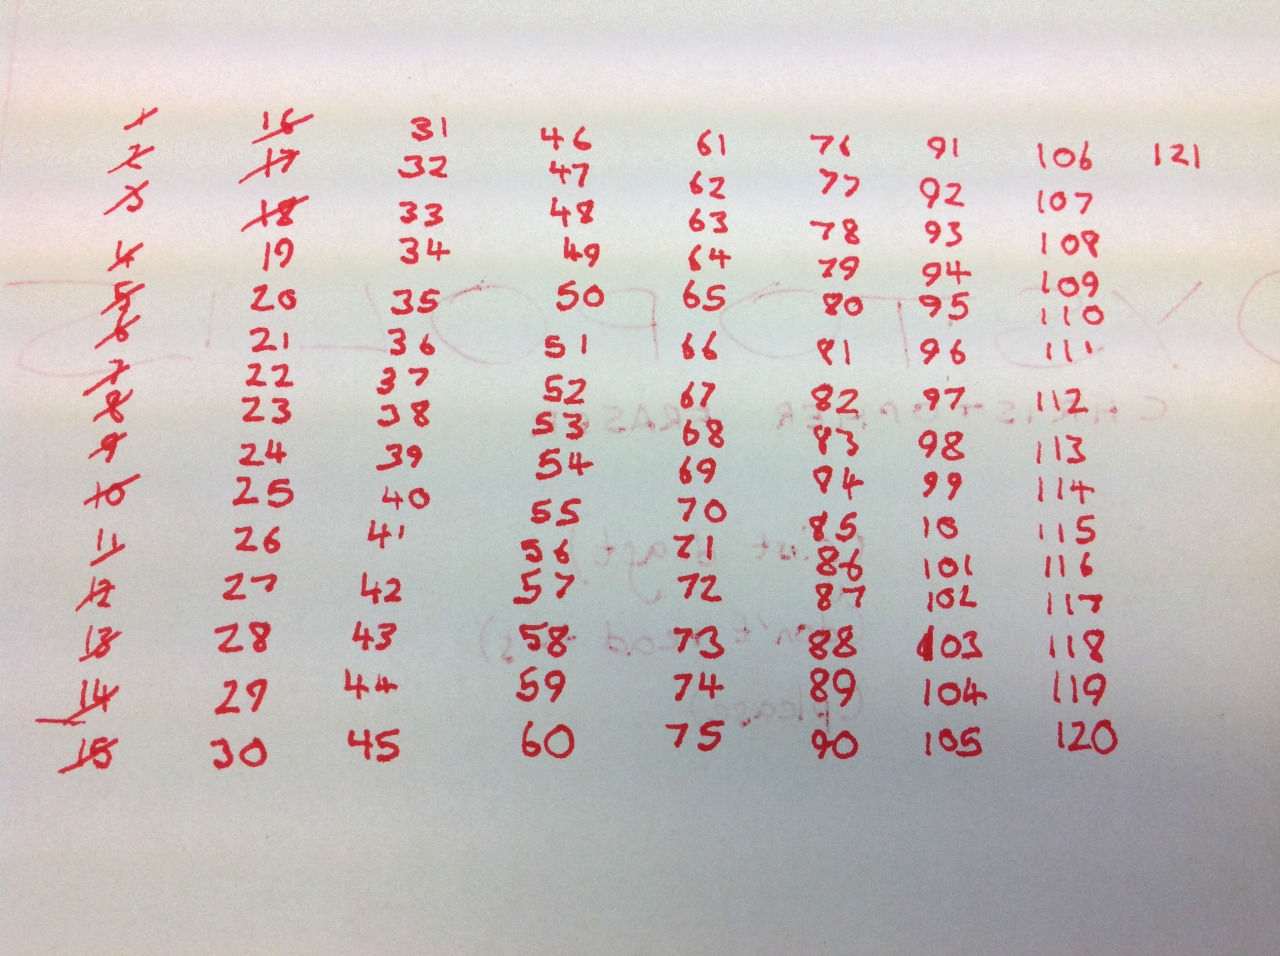 1 16 31 46 61 76 91 106 121
2 17 32 47 62 77 92 107
3 18 33 48 63 78 93 108
4 19 34 49 64 79 94 109
5 20 35 50 65 80 95 110
6 21 36 51 66 81 96 111
7 22 37 52 67 82 97 112
8 23 38 53 68 83 98 113
9 24 39 54 69 84 99 114
10 25 40 55 70 85 10 115
11 26 41 56 71 86 101 116
12 27 42 57 72 87 102 117
13 28 43 58 73 88 103 118
14 29 44 59 74 89 104 119
15 30 45 60 75 90 105 120